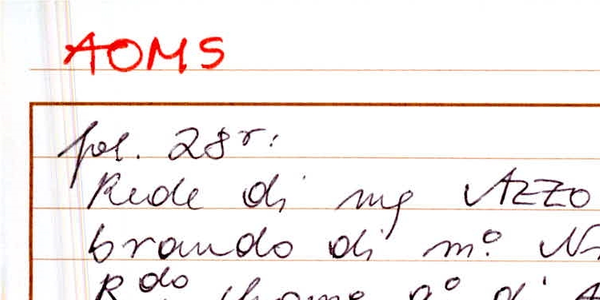 AOMS
fol. 28r:
Rede di mg AZZO
brando di m.º
R.do